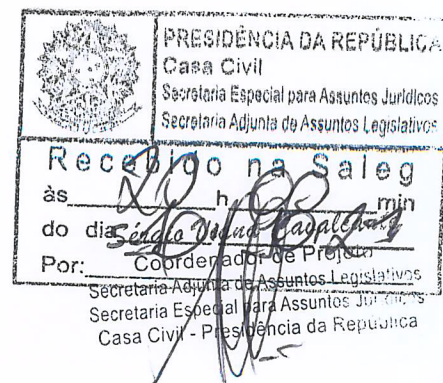 PRESIDÊNCIA DA REPÚBLICA
Casa Civil
Secretaria Especial para Assuntos Jurídicos
Secretaria Adjunta de Assuntos Legislativos
Recebido na Saleg
às 20 h min
do dia
Por:
Sérgio Cavalcanti
Coordenador de Projeto
Secretaria Adjunta de Assuntos Legislativos
Secretaria Especial para Assuntos Jurídicos
Casa Civil - Presidência da República